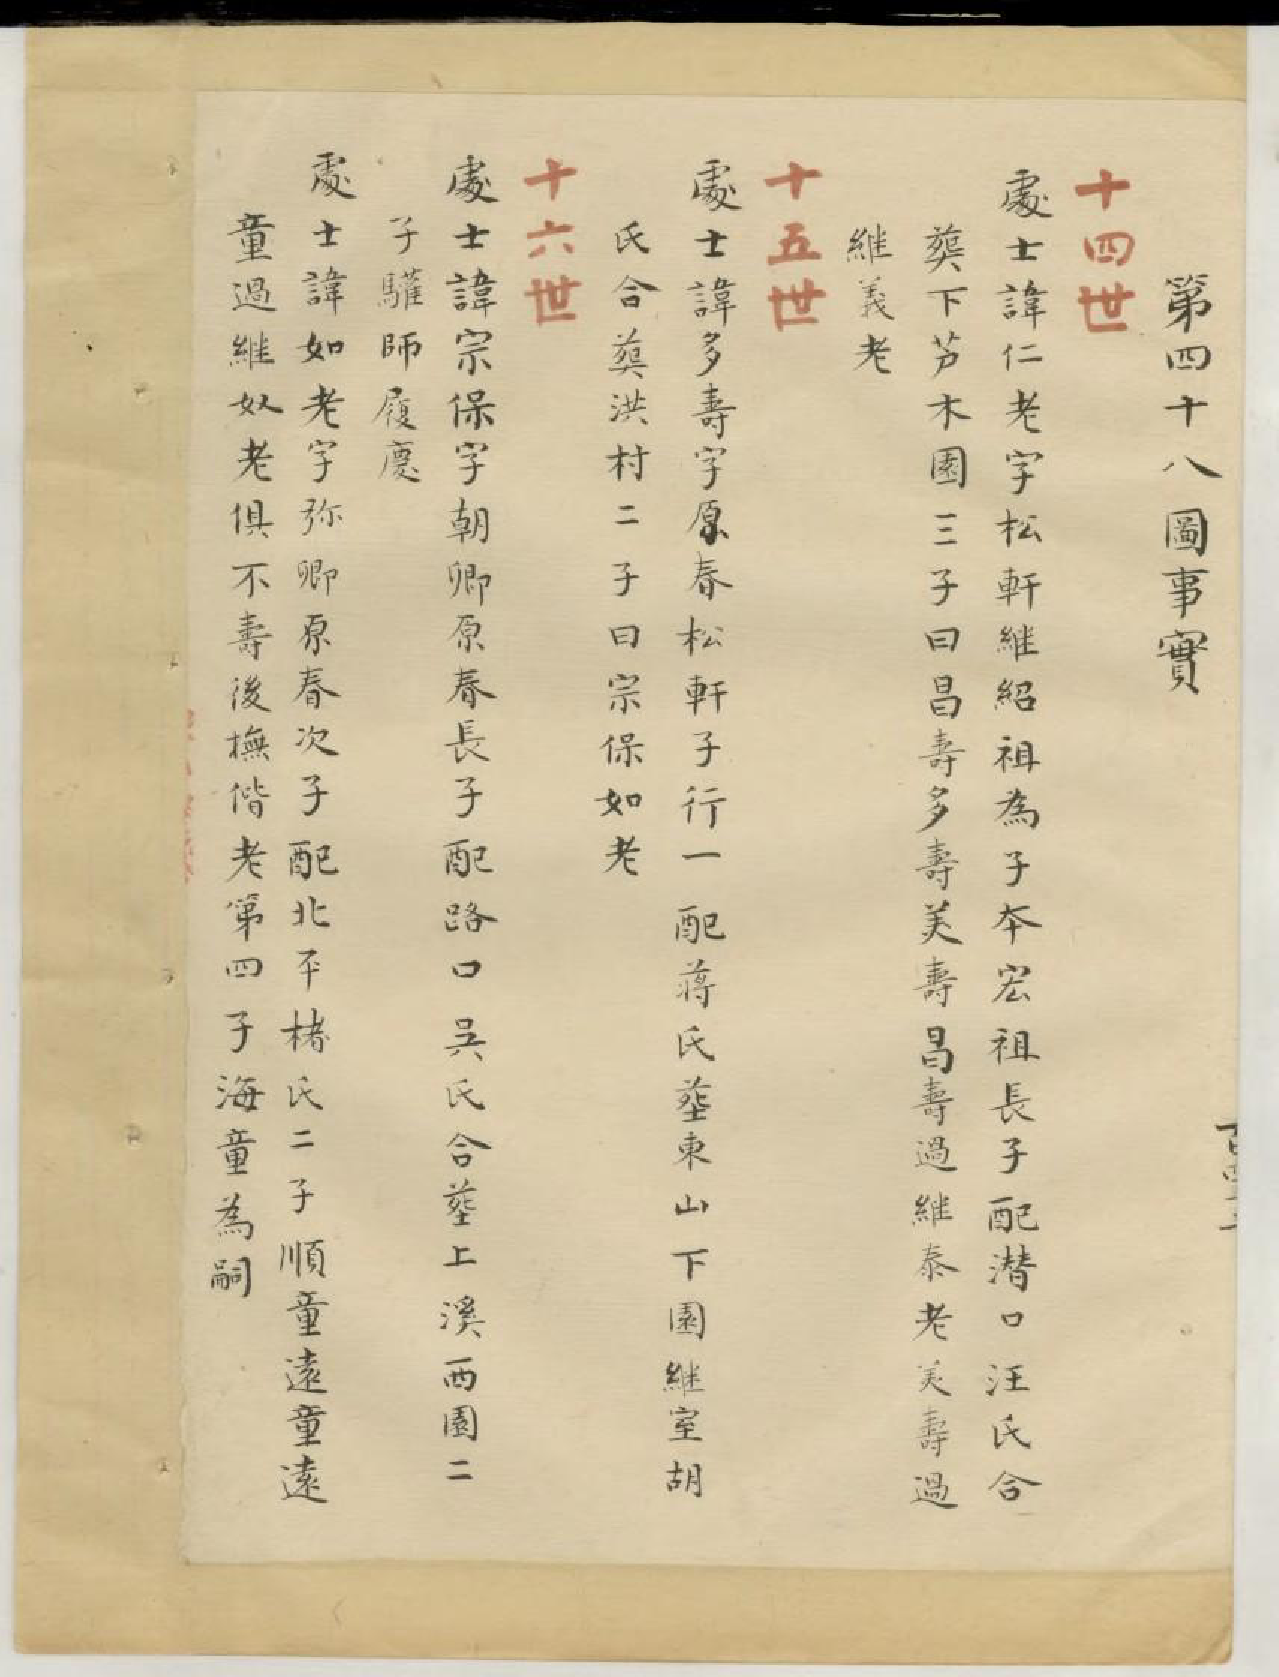 第四十八圖事實
十四世
處士諱仁老字松軒継紹祖為子本宏祖長子配潜口汪氏合
葬下芳木園三子曰昌壽多壽美壽昌壽過継泰老美壽過
継義老
十五世
處士諱多壽字原春松軒子行一配蒋氏塟東山下園継室胡
氏合葬洪村二子曰宗保如老
十六世
處士諱宗保字朝卿原春長子配路口吳氏合塟上溪西園二
子驩師履慶
處士諱如老字弥卿原春次子配北平楮氏二子順童遠童遠
童過継奴老俱不壽後撫偕老第四子海童為嗣